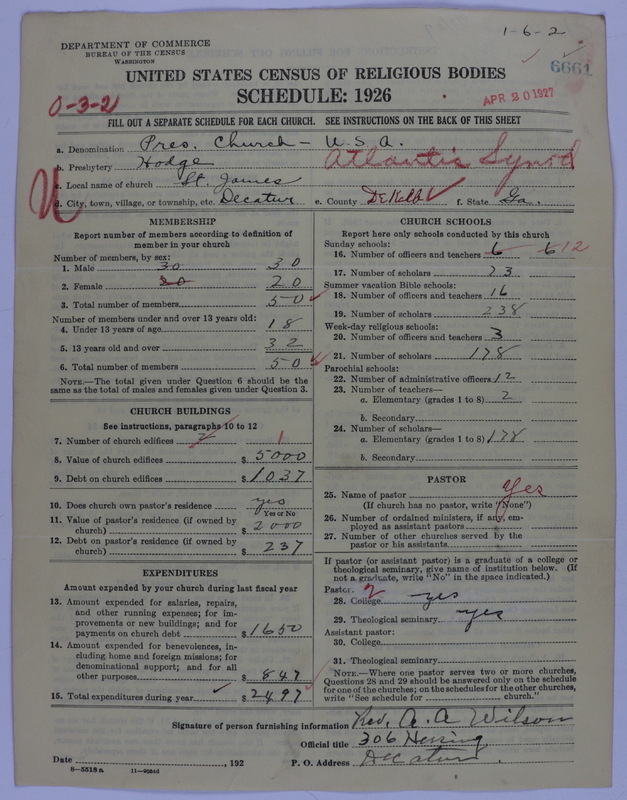 1-6-2
DEPARTMENT OF COMMERCE
BUREAU OF THE CENSUS
WASHINGTON
6661
UNITED STATES CENSUS OF RELIGIOUS BODIES
SCHEDULE: 1926
0-3-2
APR 20 1927
FILL OUT A SEPARATE SCHEDULE FOR EACH CHURCH. SEE INSTRUCTIONS ON THE BACK OF THIS SHEET
a. Denomination Pres. Church - U.S.A.
b. Presbytery Hodge Atlantic Synod
c. Local name of church St. James
d. City, town, village, or township, etc. Decatur e. County DeKalb f. State Ga.
MEMBERSHIP
Report number of members according to definition of
member in your church
Number of members, by sex:
1. Male 30 30
2. Female 20 20
3. Total number of members 50
Number of members under and over 13 years old:
4. Under 13 years of age 18
5. 13 years old and over 32
6. Total number of members 50
NOTE.—The total given under Question 6 should be the
same as the total of males and females given under Question 3.
CHURCH BUILDINGS
See instructions, paragraphs 10 to 12
7. Number of church edifices 2 1
8. Value of church edifices $ 5000
9. Debt on church edifices $ 1037
10. Does church own pastor's residence yes
Yes or No
11. Value of pastor's residence (if owned by
church) $ 2000
12. Debt on pastor's residence (if owned by
church) $ 237
EXPENDITURES
Amount expended by your church during last fiscal year
13. Amount expended for salaries, repairs,
and other running expenses; for im-
provements or new buildings; and for
payments on church debt $ 1650
14. Amount expended for benevolences, in-
cluding home and foreign missions; for
denominational support; and for all
other purposes $ 847
15. Total expenditures during year $ 2497
CHURCH SCHOOLS
Report here only schools conducted by this church
Sunday schools:
16. Number of officers and teachers 6 6 12
17. Number of scholars 73
Summer vacation Bible schools:
18. Number of officers and teachers 16
19. Number of scholars 238
Week-day religious schools:
20. Number of officers and teachers 3
21. Number of scholars 178
Parochial schools:
22. Number of administrative officers 12
23. Number of teachers—
a. Elementary (grades 1 to 8) 2
b. Secondary
24. Number of scholars—
a. Elementary (grades 1 to 8) 178
b. Secondary
PASTOR
25. Name of pastor Yes
(If church has no pastor, write "None")
26. Number of ordained ministers, if any, em-
ployed as assistant pastors
27. Number of other churches served by the
pastor or his assistants
If pastor (or assistant pastor) is a graduate of a college or
theological seminary, give name of institution below. (If
not a graduate, write "No" in the space indicated.)
Pastor: 2
28. College yes
29. Theological seminary yes
Assistant pastor:
30. College
31. Theological seminary
NOTE.—Where one pastor serves two or more churches,
Questions 28 and 29 should be answered only on the schedule
for one of the churches; on the schedules for the other churches,
write "See schedule for church."
Signature of person furnishing information Rev. A. A Wilson
Official title 306 Herring
Date , 192 P. O. Address Decatur
8-5518a 11-9064d